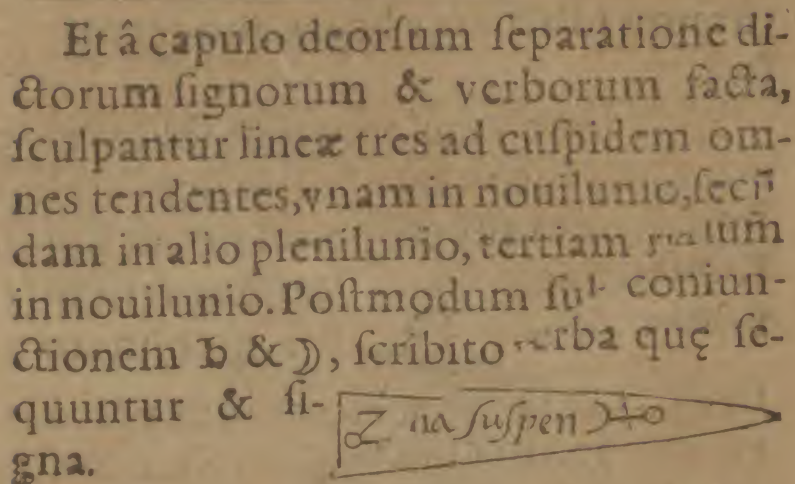 Et â capulo deorſum ſeparatione di-
ctorum ſignorum & verborum facta,
ſculpantur lineæ tres ad cuſpidem om-
nes tendentes, vnam in nouilunio, ſecũ
dam in alio plenilunio, tertiam
in nouilunio. Poſtmodum coniun-
ctionem ♄ & ☽, ſcribito quę ſe-
quuntur & ſi-
gna.
na ſuſpen